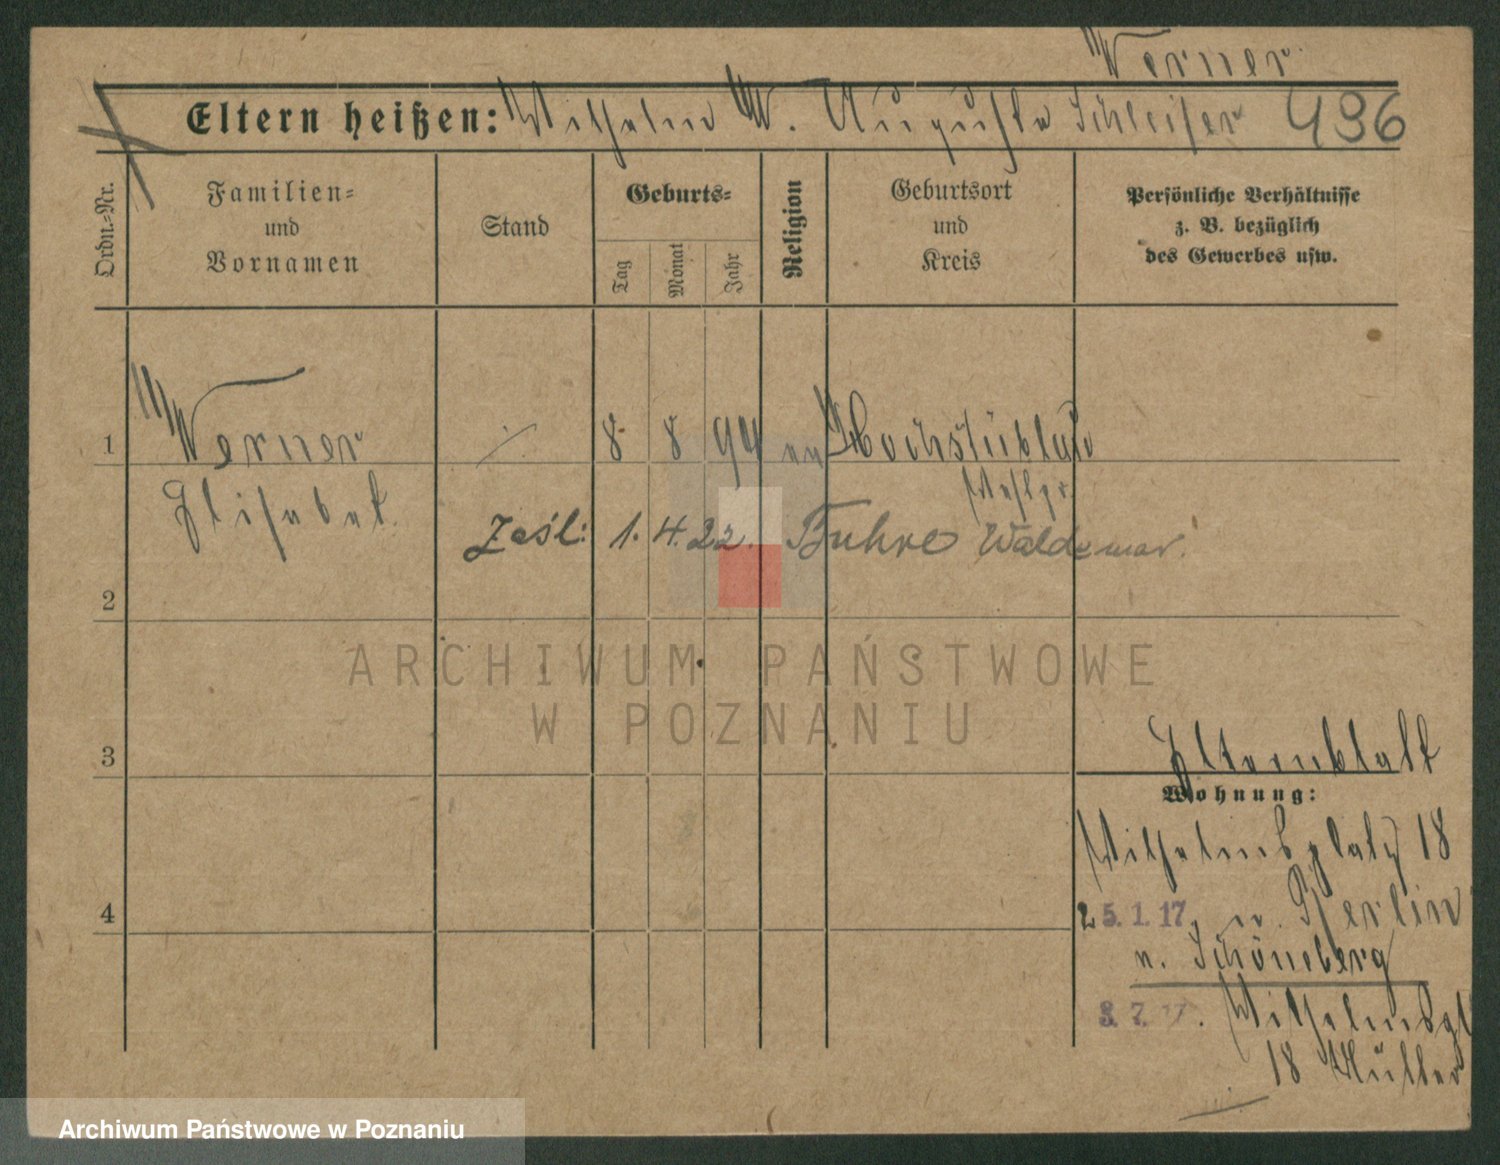 Werner
Eltern heißen: Wilhelm W. Augusta Schleiser 436
Ordn.-Nr.
Familien-
und
Vornamen
Stand
Geburts-
Tag
Monat
Jahr
Religion
Geburtsort
und
Kreis
Persönliche Verhältnisse
z. B. bezüglich
des Gewerbes usw.
1 Werner ./. 8 8 94 ev Hochstüblau
Elisabet. Westpr.
Zaśl: 1. 4. 22. Fuhre Waldemar.
2
3
4
Elternblatt
Wohnung:
Wilhelmsplatz 18
25.1.17. n. Berlin
n. Schöneberg
3.7.17. Wilhelmspl
18 Mutter
ARCHIWUM PAŃSTWOWE
W POZNANIU
Archiwum Państwowe w Poznaniu